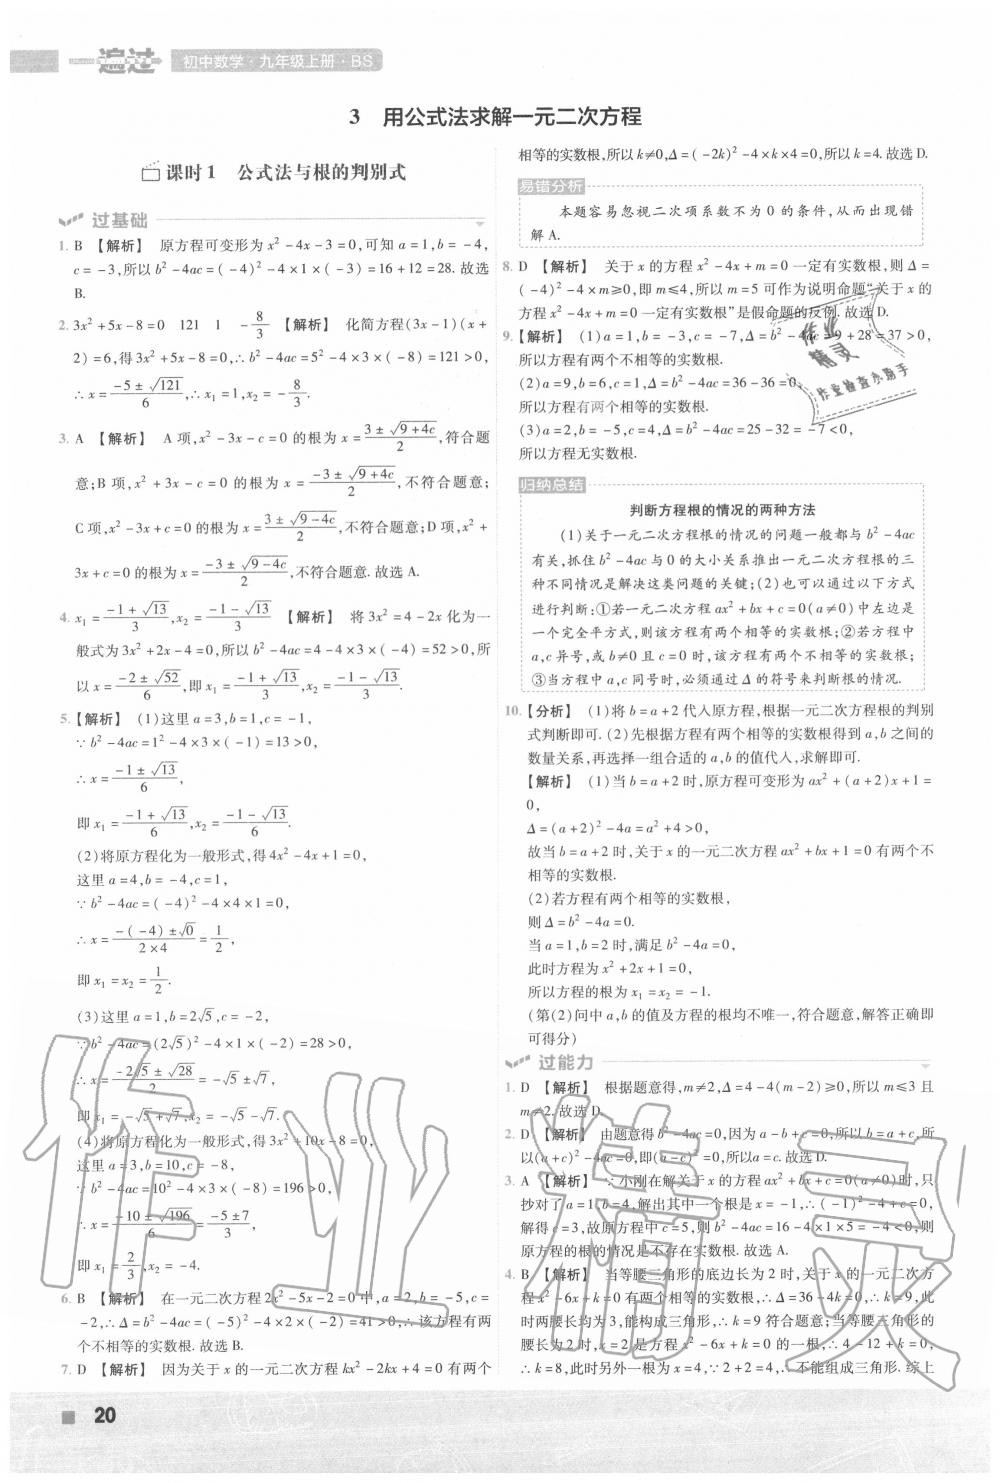 一遍过 初中数学·九年级上册·BS
3 用公式法求解一元二次方程
课时1 公式法与根的判别式
过基础
1. B 【解析】 原方程可变形为x²-4x-3=0,可知a=1,b=-4,
c=-3,所以b²-4ac=(-4)²-4×1×(-3)=16+12=28. 故选
B.
2. 3x²+5x-8=0 121 1 -8/3 【解析】 化简方程(3x-1)(x+
2)=6,得3x²+5x-8=0,∴b²-4ac=5²-4×3×(-8)=121>0,
∴x=(-5±√121)/6,∴x₁=1,x₂=-8/3.
3. A 【解析】 A项,x²-3x-c=0的根为x=(3±√(9+4c))/2,符合题
意;B项,x²+3x-c=0的根为x=(-3±√(9+4c))/2,不符合题意;
C项,x²-3x+c=0的根为x=(3±√(9-4c))/2,不符合题意;D项,x²+
3x+c=0的根为x=(-3±√(9-4c))/2,不符合题意. 故选A.
4. x₁=(-1+√13)/3,x₂=(-1-√13)/3 【解析】 将3x²=4-2x化为一
般式为3x²+2x-4=0,所以b²-4ac=4-4×3×(-4)=52>0,所
以x=(-2±√52)/6,即x₁=(-1+√13)/3,x₂=(-1-√13)/3.
5. 【解析】 (1)这里a=3,b=1,c=-1,
∵b²-4ac=1²-4×3×(-1)=13>0,
∴x=(-1±√13)/6,
即x₁=(-1+√13)/6,x₂=(-1-√13)/6.
(2)将原方程化为一般形式,得4x²-4x+1=0,
这里a=4,b=-4,c=1,
∵b²-4ac=(-4)²-4×4×1=0,
∴x=(-(-4)±√0)/(2×4)=1/2,
即x₁=x₂=1/2.
(3)这里a=1,b=2√5,c=-2,
∵b²-4ac=(2√5)²-4×1×(-2)=28>0,
∴x=(-2√5±√28)/2=-√5±√7,
即x₁=-√5+√7,x₂=-√5-√7.
(4)将原方程化为一般形式,得3x²+10x-8=0,
这里a=3,b=10,c=-8,
∵b²-4ac=10²-4×3×(-8)=196>0,
∴x=(-10±√196)/6=(-5±7)/3,
即x₁=2/3,x₂=-4.
6. B 【解析】 在一元二次方程2x²-5x-2=0中,a=2,b=-5,c=
-2,∴Δ=b²-4ac=(-5)²-4×2×(-2)=41>0,∴该方程有两
个不相等的实数根. 故选B.
7. D 【解析】 因为关于x的一元二次方程kx²-2kx+4=0有两个
相等的实数根,所以k≠0,Δ=(-2k)²-4×k×4=0,所以k=4. 故选D.
易错分析
本题容易忽视二次项系数不为0的条件,从而出现错
解A.
8. D 【解析】 关于x的方程x²-4x+m=0一定有实数根,则Δ=
(-4)²-4×m≥0,即m≤4,所以m=5可作为说明命题“关于x的
方程x²-4x+m=0一定有实数根”是假命题的反例. 故选D.
9. 【解析】 (1)a=1,b=-3,c=-7,Δ=b²-4ac=9+28=37>0,
所以方程有两个不相等的实数根.
(2)a=9,b=6,c=1,Δ=b²-4ac=36-36=0,
所以方程有两个相等的实数根.
(3)a=2,b=-5,c=4,Δ=b²-4ac=25-32=-7<0,
所以方程无实数根.
作业
精灵
作业检查小助手
归纳总结
判断方程根的情况的两种方法
(1)关于一元二次方程根的情况的问题一般都与b²-4ac
有关,抓住b²-4ac与0的大小关系推出一元二次方程根的三
种不同情况是解决这类问题的关键;(2)也可以通过以下方式
进行判断:①若一元二次方程ax²+bx+c=0(a≠0)中左边是
一个完全平方式,则该方程有两个相等的实数根;②若方程中
a,c异号,或b≠0且c=0时,该方程有两个不相等的实数根;
③当方程中a,c同号时,必须通过Δ的符号来判断根的情况.
10. 【分析】 (1)将b=a+2代入原方程,根据一元二次方程根的判别
式判断即可. (2)先根据方程有两个相等的实数根得到a,b之间的
数量关系,再选择一组合适的a,b的值代入,求解即可.
【解析】 (1)当b=a+2时,原方程可变形为ax²+(a+2)x+1=
0,
Δ=(a+2)²-4a=a²+4>0,
故当b=a+2时,关于x的一元二次方程ax²+bx+1=0有两个不
相等的实数根.
(2)若方程有两个相等的实数根,
则Δ=b²-4a=0.
当a=1,b=2时,满足b²-4a=0,
此时方程为x²+2x+1=0,
所以方程的根为x₁=x₂=-1.
(第(2)问中a,b的值及方程的根均不唯一,符合题意,解答正确即
可得分)
过能力
1. D 【解析】 根据题意得,m≠2,Δ=4-4(m-2)≥0,所以m≤3且
m≠2. 故选D.
2. D 【解析】 由题意得b²-4ac=0,因为a-b+c=0,所以b=a+c,所
以(a+c)²-4ac=0,即(a-c)²=0,所以a=c. 故选D.
3. A 【解析】 ∵小刚在解关于x的方程ax²+bx+c=0(a≠0)时,只
抄对了a=1,b=4,解出其中一个根是x=-1,∴(-1)²-4+c=0,
解得c=3,故原方程中c=5,则b²-4ac=16-4×1×5=-4<0,则
原方程的根的情况是不存在实数根. 故选A.
4. B 【解析】 当等腰三角形的底边长为2时,关于x的一元二次方
程x²-6x+k=0有两个相等的实数根,∴Δ=36-4k=0,∴k=9,此
时两腰长均为3,能构成三角形,∴k=9符合题意;当等腰三角形的
腰长为2时,x=2是方程x²-6x+k=0的一个根,∴4-12+k=0,
∴k=8,此时另外一根为x=4,∵2+2=4,∴不能组成三角形. 综上
20
作业精灵